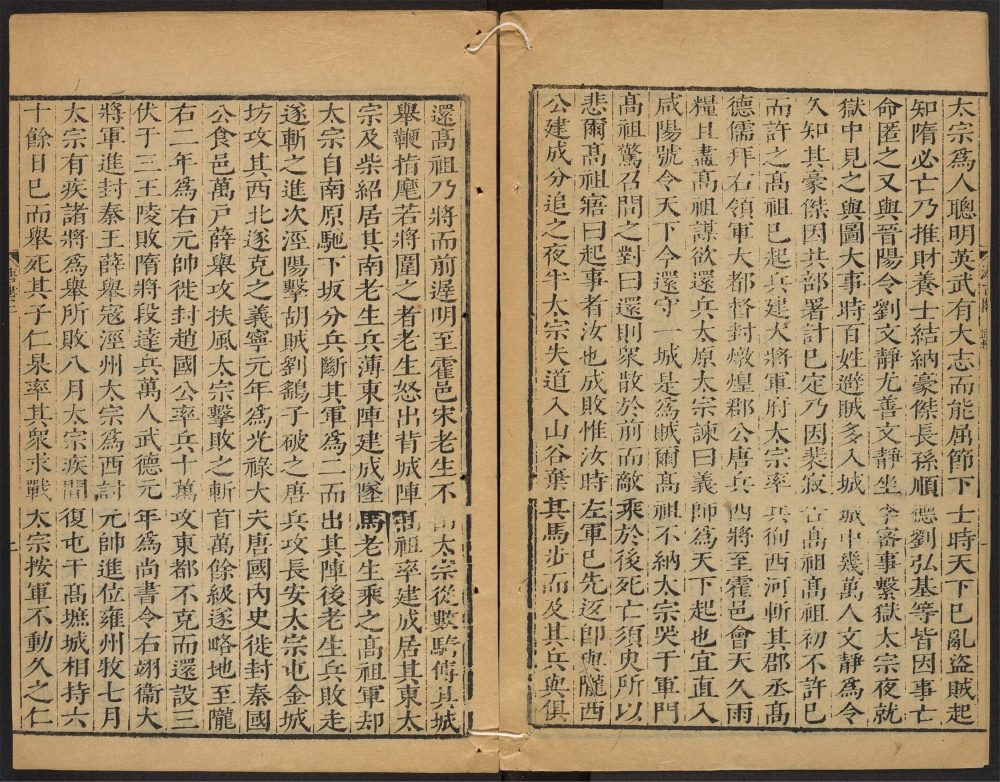 太宗爲人聰明英武有大志而能屈節下士時天下已亂盜賊起
知隋必亡乃推財養士結納豪傑長孫順德劉弘基等皆因事亡
命匿之又與晉陽令劉文靜尤善文靜坐李密事繫獄太宗夜就
獄中見之與圖大事時百姓避賊多入城城中幾萬人文靜爲令
久知其豪傑因共部署計已定乃因裴寂告高祖高祖初不許已
而許之高祖已起兵建大將軍府太宗率兵徇西河斬其郡丞高
德儒拜右領軍大都督封燉煌郡公唐兵西將至霍邑會天久雨
糧且盡高祖謀欲還兵太原太宗諫曰義師爲天下起也宜直入
咸陽號令天下今還守一城是爲賊爾高祖不納太宗哭于軍門
高祖驚召問之對曰還則衆散於前而敵乘於後死亡須臾所以
悲爾高祖寤曰起事者汝也成敗惟汝時左軍已先返卽與隴西
公建成分追之夜半太宗失道入山谷棄其馬步而及其兵與俱
還高祖乃將而前遲明至霍邑宋老生不出太宗從數騎傅其城
舉鞭指麾若將圍之者老生怒出背城陣高祖率建成居其東太
宗及柴紹居其南老生兵薄東陣建成墜馬老生乘之高祖軍却
太宗自南原馳下坂分兵斷其軍爲二而出其陣後老生兵敗走
遂斬之進次涇陽擊胡賊劉鷂子破之唐兵攻長安太宗屯金城
坊攻其西北遂克之義寧元年爲光祿大夫唐國內史徙封秦國
公食邑萬戶薛舉攻扶風太宗擊敗之斬首萬餘級遂略地至隴
右二年爲右元帥徙封趙國公率兵十萬攻東都不克而還設三
伏于三王陵敗隋將段達兵萬人武德元年爲尚書令右翊衞大
將軍進封秦王薛舉寇涇州太宗爲西討元帥進位雍州牧七月
太宗有疾諸將爲舉所敗八月太宗疾閒復屯于高墌城相持六
十餘日已而舉死其子仁杲率其衆求戰太宗按軍不動久之仁